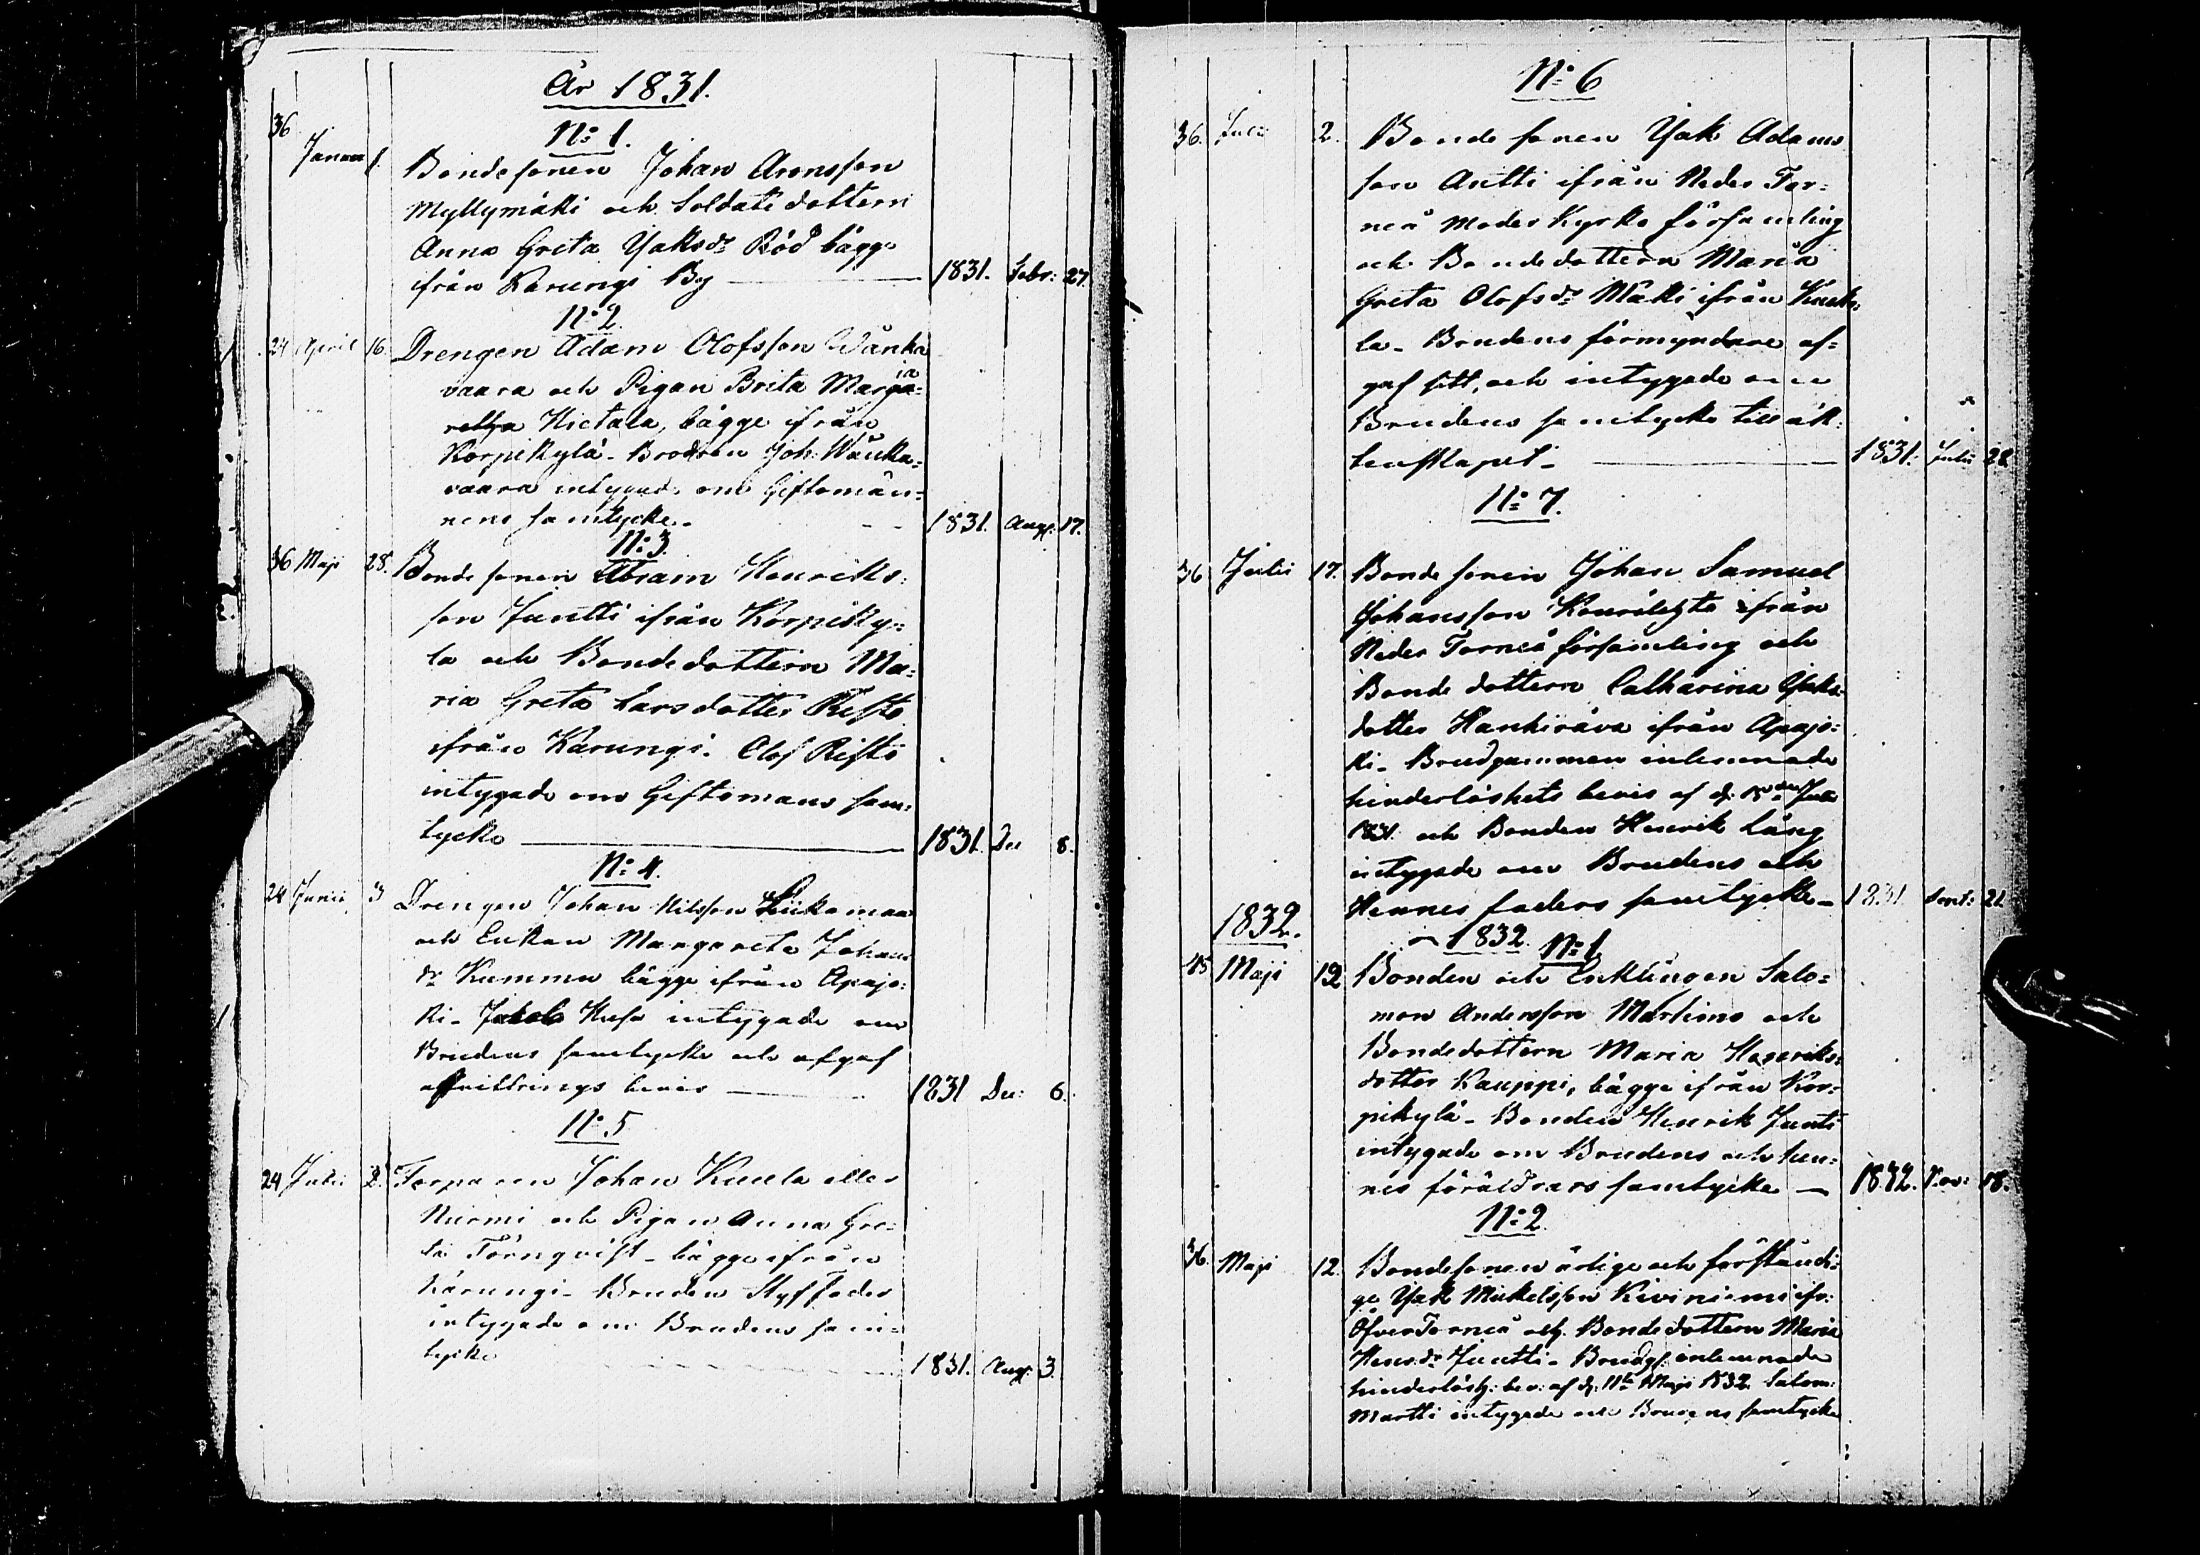 År 1831.
36
N:o 1.
Januar 1. Bondesonen Johan Aronsson
Myllymäki och Soldats dottern
Anna Greta Jaksdr Röd bägge
ifrån Karungi By — 1831. Febr: 27.
N:o 2.
24 April 16. Drengen Adam Olofsson Wänka
vaara och Pigan Brita Marga=
Hietala, bägge ifrån
Korpikylä. Brodren Joh: Wänka=
vaara intygade om Giftomän=
nens samtycke. 1831. Aug: 17.
N:o 3.
36 Maji 28. Bonde sonen Abram Henriks:
son Juntti ifrån Korpiky=
la och Bondedottern Ma=
ria Greta Larsdotter Risto
ifrån Karungi. Olof Risto
intygade om Giftomans sam:
tycke — 1831. Dec 8.
N:o 4.
24 Junii 3 Drengen Johan Nilsson Liikamaa
och Enkan Margareta Johans
dr Kummu bägge ifrån Apajo:
ki. Jakob Husa intygade om
Brudens samtycke och afgaf
afvittrings bevis — 1831 Dec: 6.
N:o 5
24 Julii 2. Torparen Johan Kuula eller
Niemi och Pigan Anna Gre=
ta Törnqvist bägge ifrån
Karungi. Brudens Styffader
intygade om Brudens sam=
tycke 1831. Aug: 3.
N:o 6
36. Julii 2. Bonde sonen Jak Adams
son Antti ifrån Neder Tor=
neå Moderkyrko församling
och Bondedottern Maria
Greta Olofsdr Mäki ifrån Kuck:
la. Brudens förmyndare af=
gaf sitt, och intygade om
Brudens samtycke till äk:
tenskapet. — 1831. Julii 28
N:o 7.
36 Julii 17. Bonde sonen Johan Samuel
Johansson ifrån
Neder Torneå församling och
Bonde dottern Catharina Jaks
dotter Hankivaara ifrån Apajo:
ki. Brudgummen inlemnade
hinderlöshets bevis af d. 15de Julii
1831 och Bonden Henrik Lång
intygade om Brudens och
Hennes faders samtycke — 1831 Sept: 21.
1832.
1832. N:o 1
45 Maji 12 Bonden och Enklingen Salo=
mon Andersson Martimo och
Bondedottern Maria Henriks:
dotter Kauppi, bägge ifrån Kor=
pikylä. Bonden Henrik Junti
intygade om Brudens och hen=
nes föräldrars samtycke — 1832. Nov: 18.
N:o 2.
36. Maji 12. Bondesonen ärlige och förståndi:
ge Jak Mickelsson Kiviniemi ifr:
Öfver Torneå och Bondedottern Maria
Henr:dr Juntti. Brudg: inlemnade
hinderlösh: bev: af d: 11te Maji 1832. Salom:
Martti intygade om Brudens samtycke